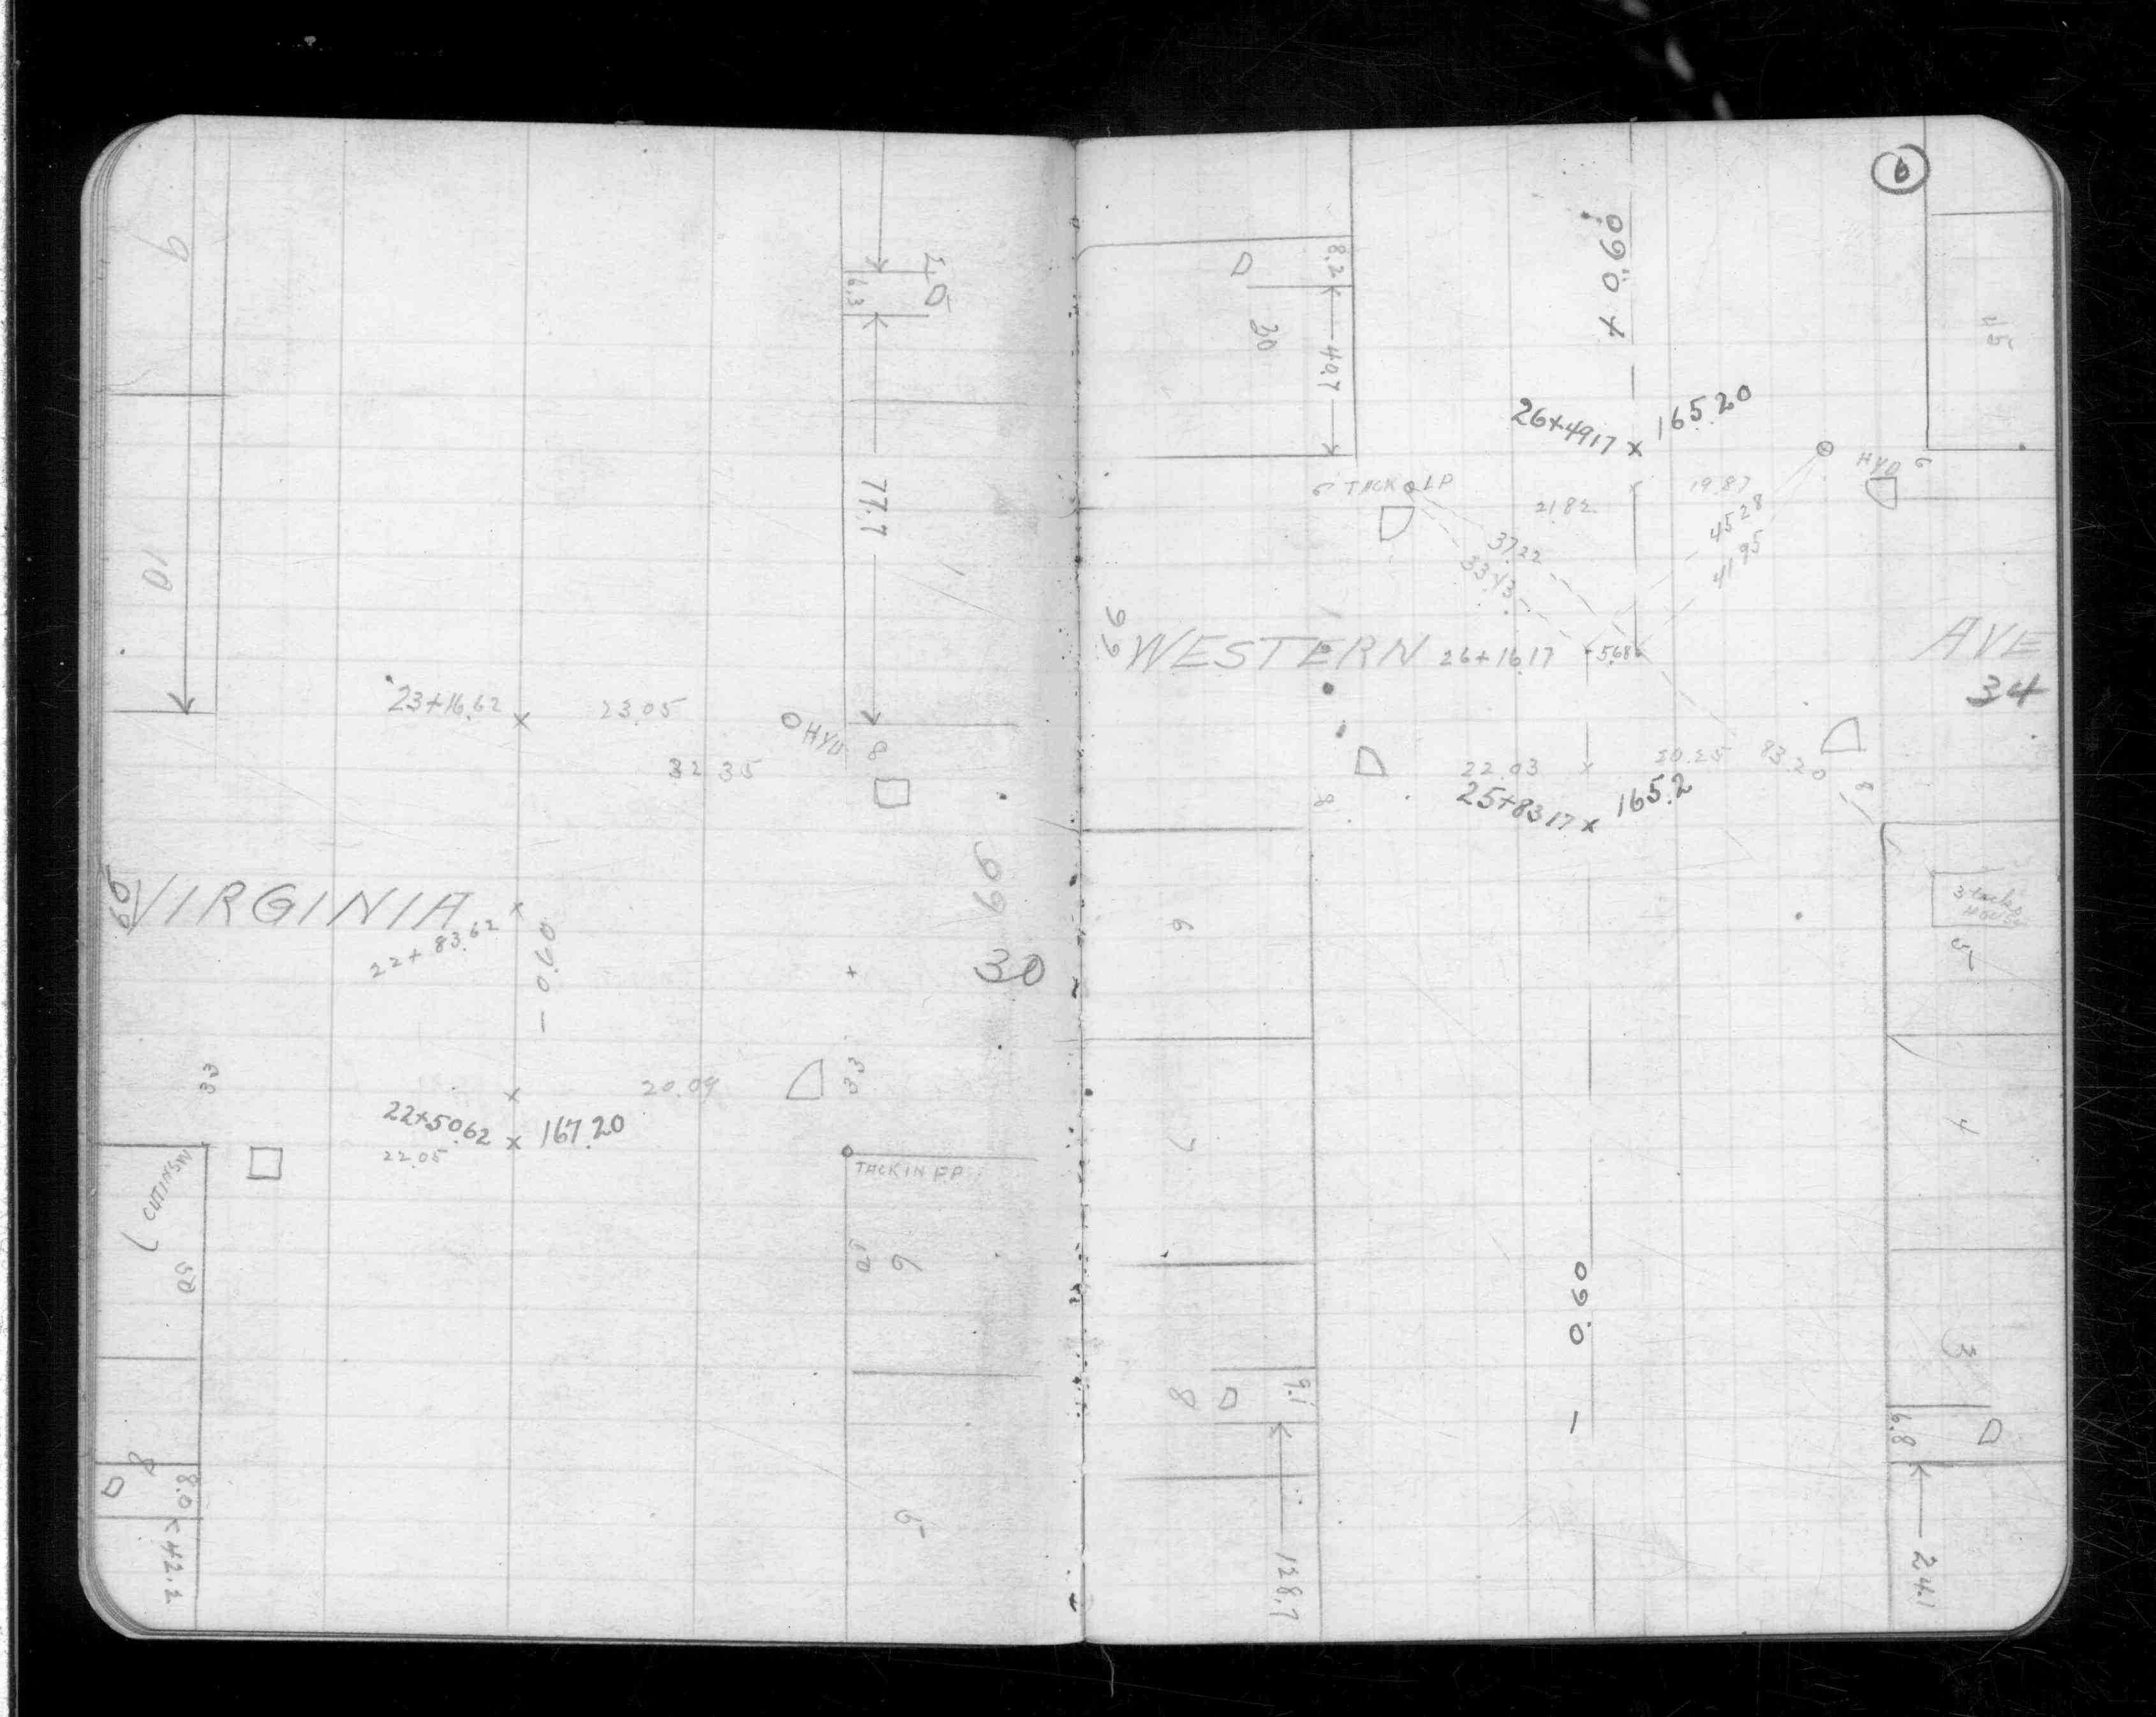 9
6.3
10
77.7
1
23+16.62 x 23.05
HYD
8
32 35
VIRGINIA
66
22+83.62
-0.60
66
30
33
20.09
33
22+50.62 x 167.20
22.05
TACK IN P.P.
50
6
50
8
8.0
42.2
5
6
8.2
40.7
20
+0.60
15
26+49.17 x 165.20
HYD
6
6 TACK LP
21.82
19.87
37.22
45 28
33.43
41 95
66
WESTERN
26+16.17
5.68
AVE
34
22.03 x 20.25 83.20
8
8
25+83.17 x 165.2
6
5
7
4
-0.60
3
8
9.1
6.8
128.7
24.1